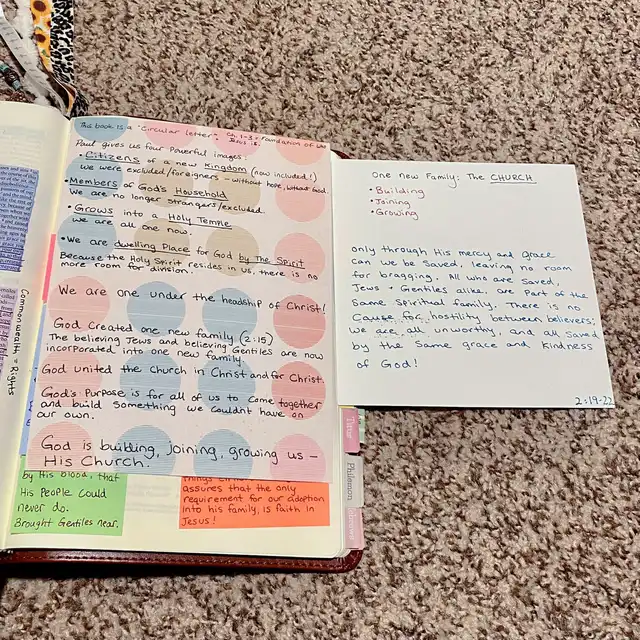 This book is a "Circular letter". Ch. 1-3 = Foundation of who
Jesus is.
Paul gives us four powerful images:
• Citizens of a new Kingdom (now included!)
we were excluded/foreigners - without hope, without God.
• Members of God's Household
we are no longer strangers/excluded.
• Grows into a Holy Temple
we are all one now.
• We are dwelling Place for God by The Spirit
Because the Holy Spirit resides in us, there is no
more room for division.
We are one under the headship of Christ!
God created one new family (2:15)
The believing Jews and believing Gentiles are now
incorporated into one new family.
God united the Church in Christ and for Christ.
God's Purpose is for all of us to come together
and build something we couldn't have on
our own.
God is building, joining, growing us -
His Church.
Commonwealth = Rights
by His blood, that
His People could
never do.
Brought Gentiles near.
assures that the only
requirement for our adoption
into his family, is faith in
Jesus!
One new Family: The CHURCH
• Building
• Joining
• Growing
only through His mercy and Grace
can we be Saved, leaving no room
for bragging. All who are saved,
Jews + Gentiles alike, are part of the
Same Spiritual family. There is no
Cause for hostility between believers;
we are all unworthy, and all Saved
by the Same grace and kindness
of God!
2:19-22
Titus
Philemon